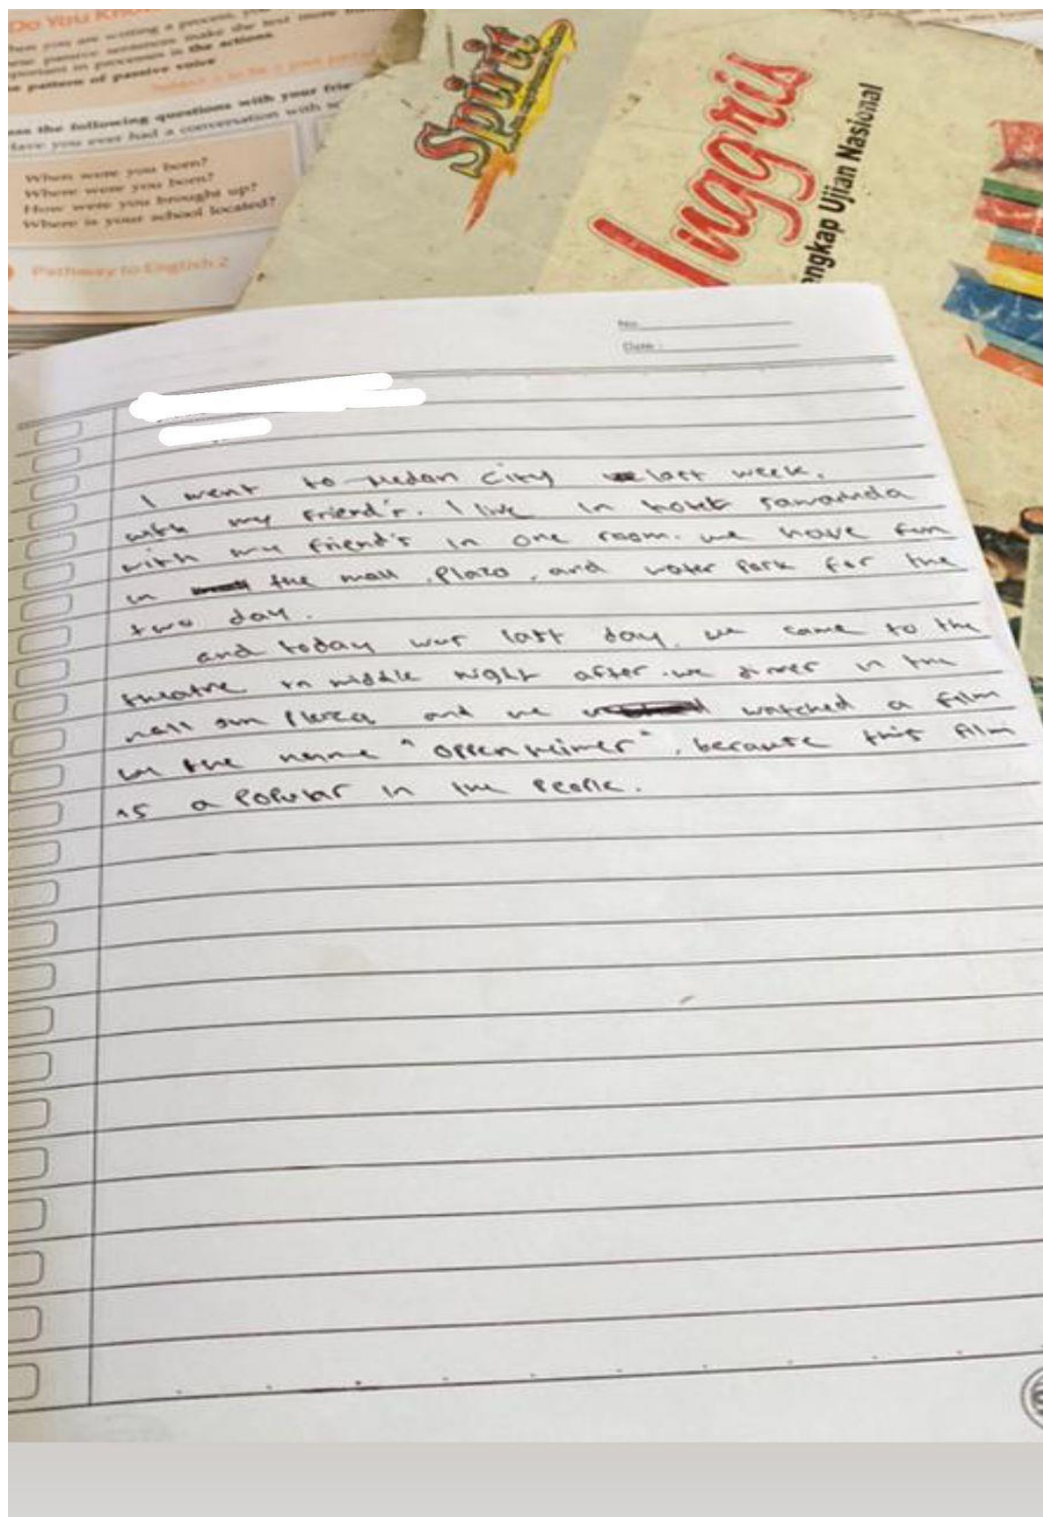 Do You Know
When you are writing a process, you
passive sentences make the text more
important in processes is the actions
pattern of passive voice
the following questions with your
Have you ever had a conversation with
When were you born?
Where were you born?
How were you brought up?
Where is your school located?
Pathway to English 2
Spirit
Inggris
engkap Ujian Nasional
No
Date :
I went to Medan City last week,
with my friend's. I live in hotel
with my friend's in one room. we have fun
in the mall, Plaza, and water park for the
two day.
and today was last day, we came to the
theatre in middle night after we dinner in the
mall sun Plaza and we watched a film
in the name "oppenheimer", because this film
is a Popular in the People.